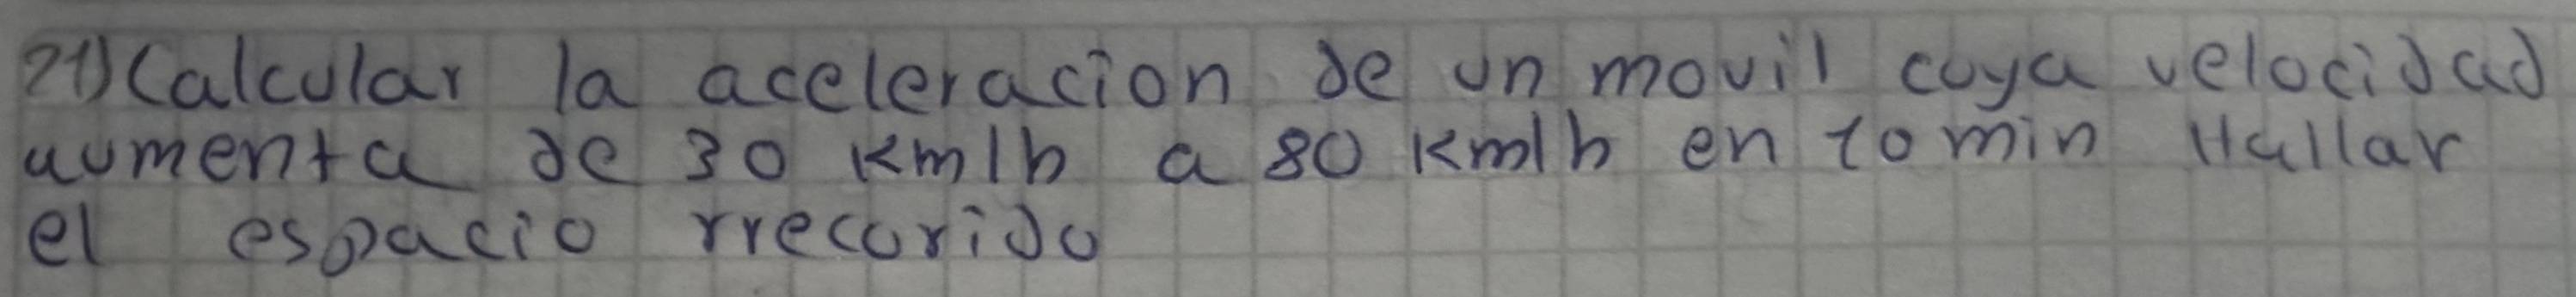 21) Calcular la aceleracion de un movil cuya velocidad
aumenta de 30 Km/h a 80 Km/h en 10 min Hallar
el espacio rrecorido